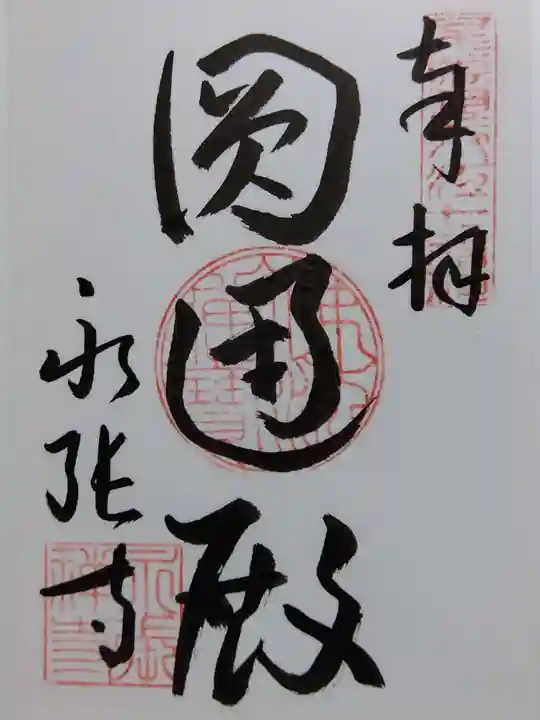 奉拝
圓通殿
永張寺